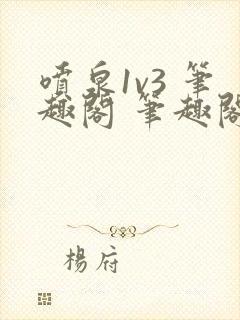 噴泉1v3 筆
趣閣 筆趣閣
楊府